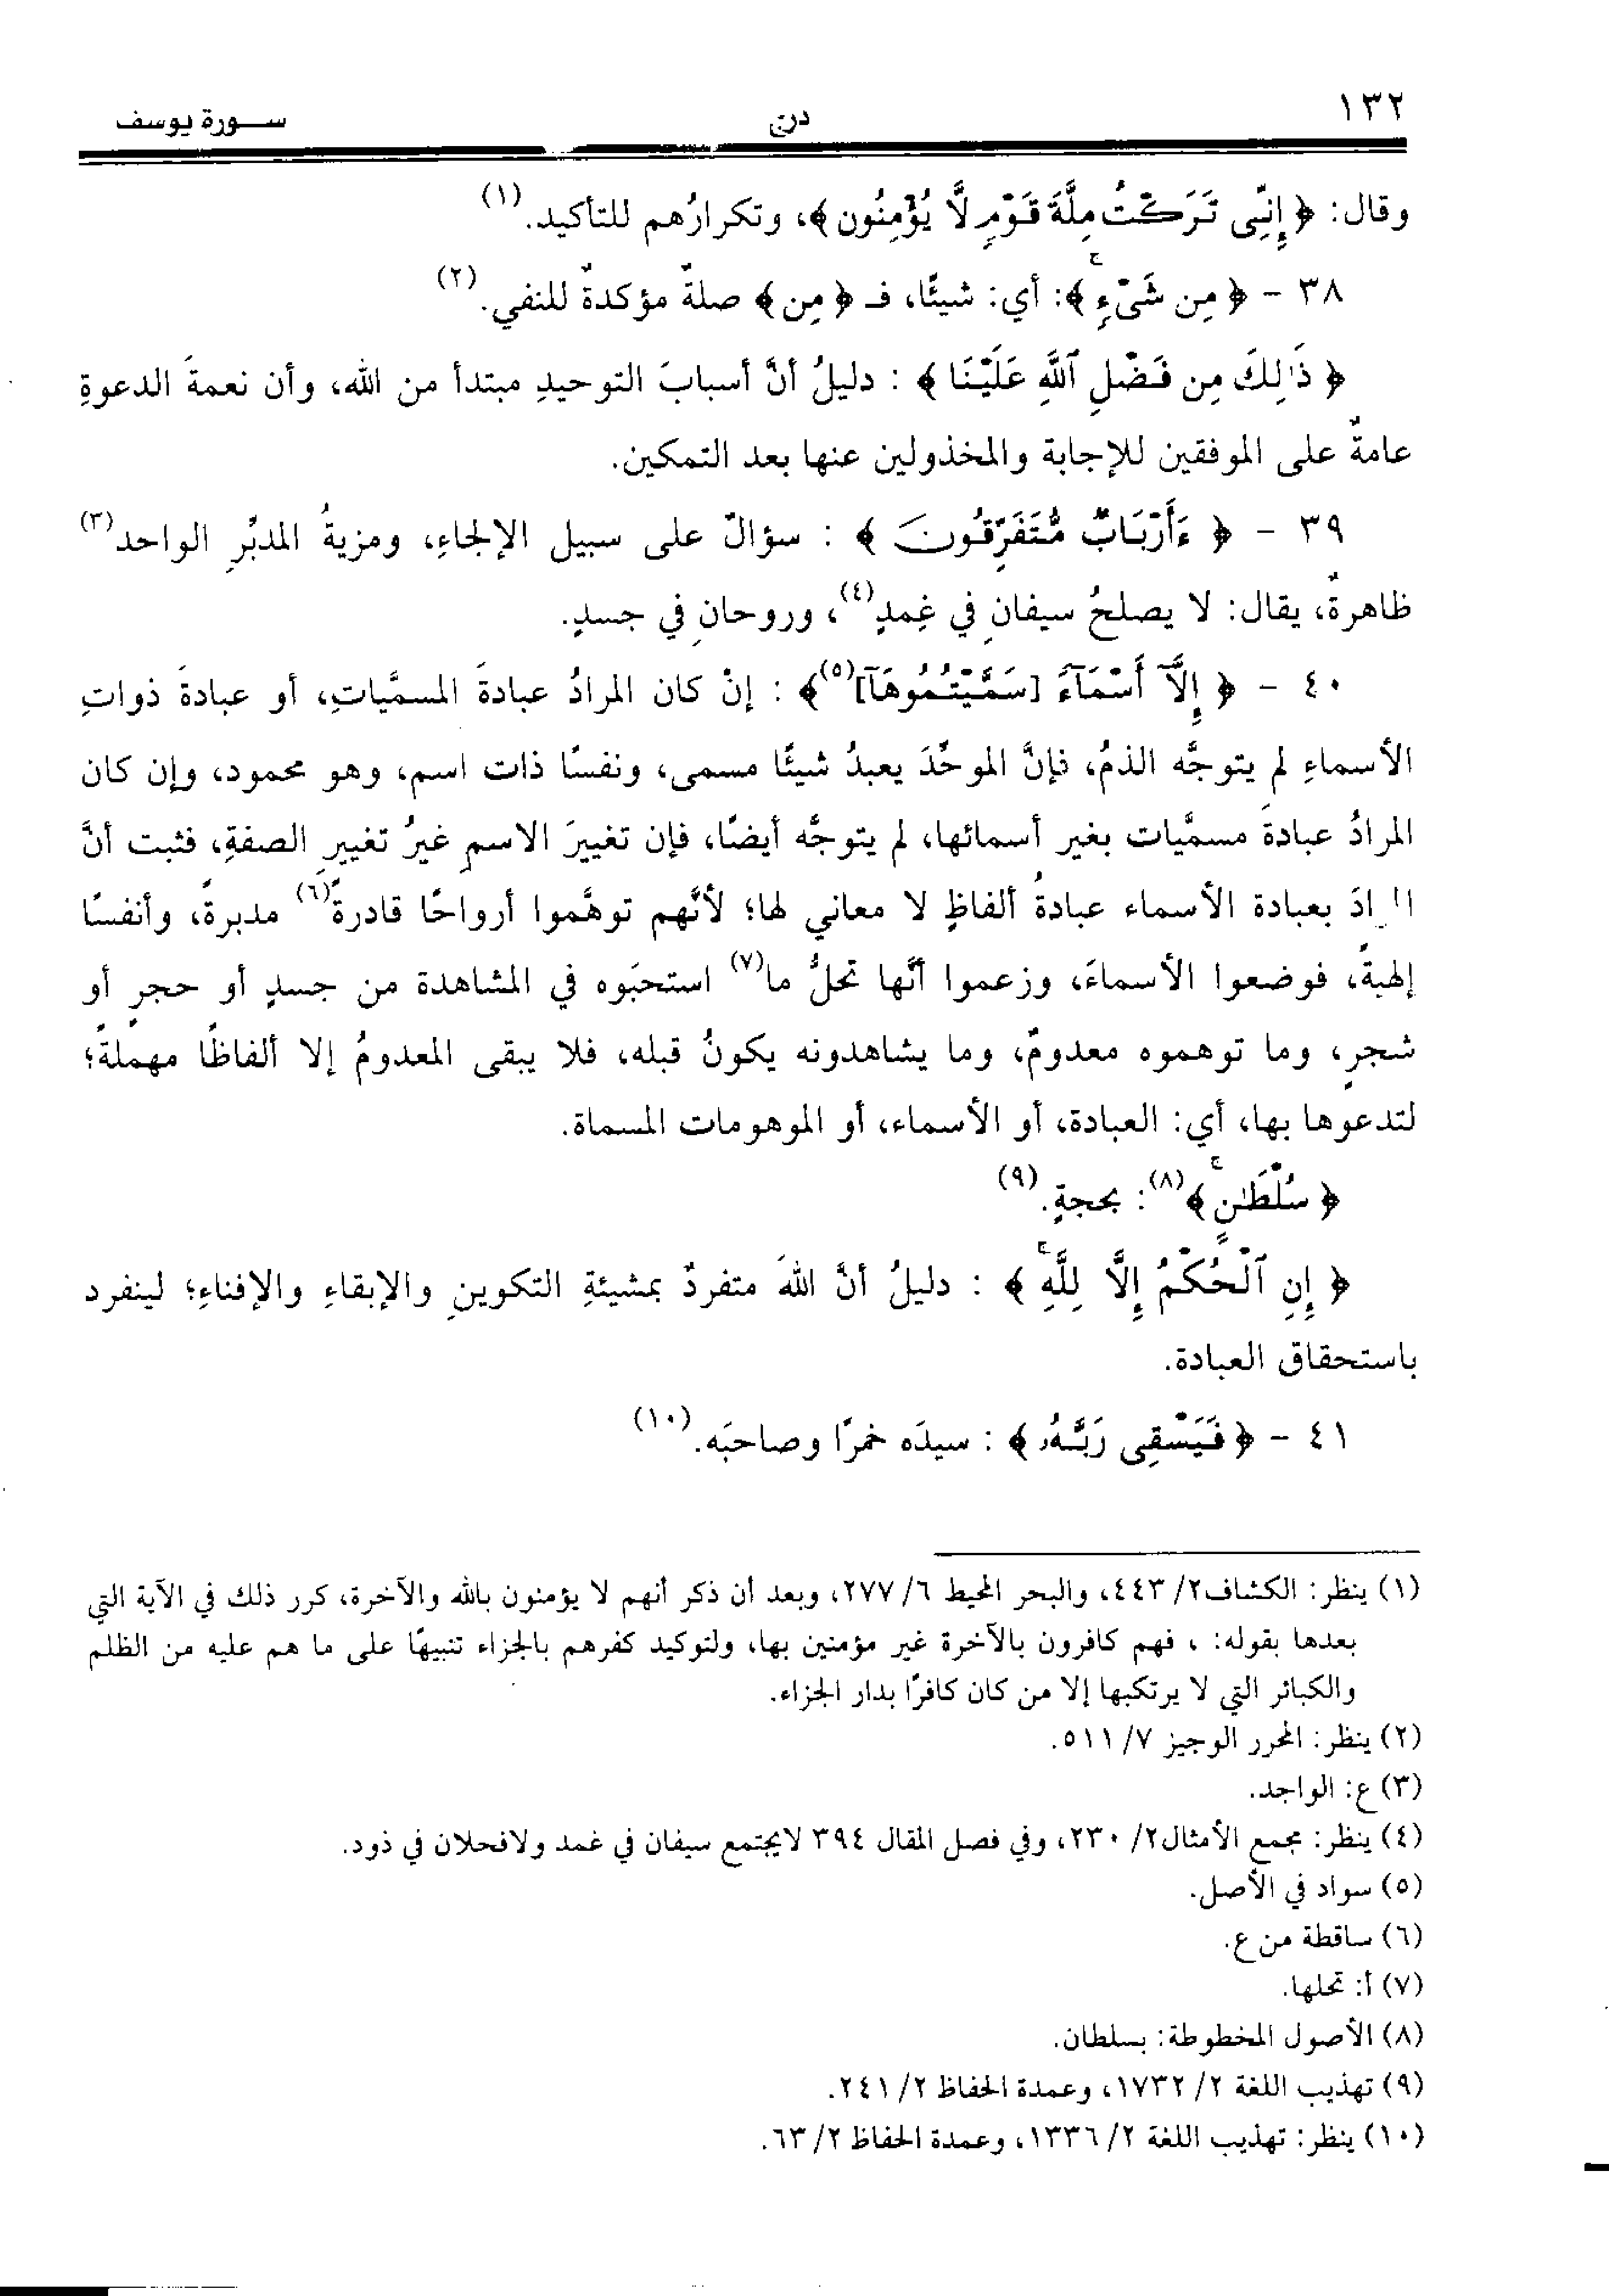 ١٣٢
سورة يوسف
وقال: ﴿ إِنِّى تَرَكْتُ مِلَّةَ قَوْمٍ لَّا يُؤْمِنُون ﴾، وتكرارُهم للتأكيد.(١)
٣٨ - ﴿ مِن شَىْءٍۚ ﴾: أي: شيئًا، فـ ﴿ مِن ﴾ صلةٌ مؤكدةٌ للنفي.(٢)
﴿ ذَٰلِكَ مِن فَضْلِ ٱللَّهِ عَلَيْنَا ﴾ : دليلُ أنَّ أسبابَ التوحيدِ مبتدأ من الله، وأن نعمةَ الدعوةِ
عامةٌ على الموفقين للإجابة والمخذولين عنها بعد التمكين.
٣٩ - ﴿ ءَأَرْبَابٌ مُّتَفَرِّقُونَ ﴾ : سؤالٌ على سبيل الإلجاءِ، ومزيةُ المدبِّرِ الواحد(٣)
ظاهرةٌ، يقال: لا يصلحُ سيفانِ في غِمدٍ(٤)، وروحانِ في جسدٍ.
٤٠ - ﴿ إِلَّآ أَسْمَآءً [سَمَّيْتُمُوهَآ](٥)﴾ : إنْ كان المرادُ عبادةَ المسمَّياتِ، أو عبادةَ ذواتِ
الأسماءِ لم يتوجَّه الذمُ، فإنَّ الموحِّدَ يعبدُ شيئًا مسمى، ونفسًا ذات اسم، وهو محمود، وإن كان
المرادُ عبادةَ مسمَّيات بغير أسمائها، لم يتوجَّه أيضًا، فإن تغييرَ الاسمِ غيرُ تغييرِ الصفةِ، فثبت أنَّ
بعبادة الأسماء عبادةُ ألفاظٍ لا معاني لها؛ لأنَّهم توهَّموا أرواحًا قادرةً(٦) مدبرةً، وأنفسًا
إلهيةً، فوضعوا الأسماءَ، وزعموا أنَّها تحلُّ ما(٧) استحبَوه في المشاهدة من جسدٍ أو حجرٍ أو
شجرٍ، وما توهموه معدومٌ، وما يشاهدونه يكونُ قبله، فلا يبقى المعدومُ إلا ألفاظًا مهملةً؛
لتدعوها بها، أي: العبادة، أو الأسماء، أو الموهومات المسماة.
﴿ سُلْطَٰنٍۚ ﴾(٨): بحجةٍ.(٩)
﴿ إِنِ ٱلْحُكْمُ إِلَّا لِلَّهِۚ ﴾ : دليلُ أنَّ اللهَ متفردٌ بمشيئةِ التكوينِ والإبقاءِ والإفناءِ؛ لينفرد
باستحقاق العبادة.
٤١ - ﴿ فَيَسْقِى رَبَّهُۥ ﴾ : سيدَه خمرًا وصاحبَه.(١٠)
(١) ينظر: الكشاف٢/ ٤٤٣، والبحر المحيط ٦/ ٢٧٧، وبعد أن ذكر أنهم لا يؤمنون بالله والآخرة، كرر ذلك في الآية التي
بعدها بقوله: ، فهم كافرون بالآخرة غير مؤمنين بها، ولتوكيد كفرهم بالجزاء تنبيهًا على ما هم عليه من الظلم
والكبائر التي لا يرتكبها إلا من كان كافرًا بدار الجزاء.
(٢) ينظر: المحرر الوجيز ٧/ ٥١١.
(٣) ع: الواجد.
(٤) ينظر: مجمع الأمثال٢/ ٢٣٠، وفي فصل المقال ٣٩٤ لايجتمع سيفان في غمد ولافحلان في ذود.
(٥) سواد في الأصل.
(٦) ساقطة من ع.
(٧) أ: تحلها.
(٨) الأصول المخطوطة: بسلطان.
(٩) تهذيب اللغة ٢/ ١٧٣٢، وعمدة الحفاظ ٢/ ٢٤١.
(١٠) ينظر: تهذيب اللغة ٢/ ١٣٣٦، وعمدة الحفاظ ٢/ ٦٣.